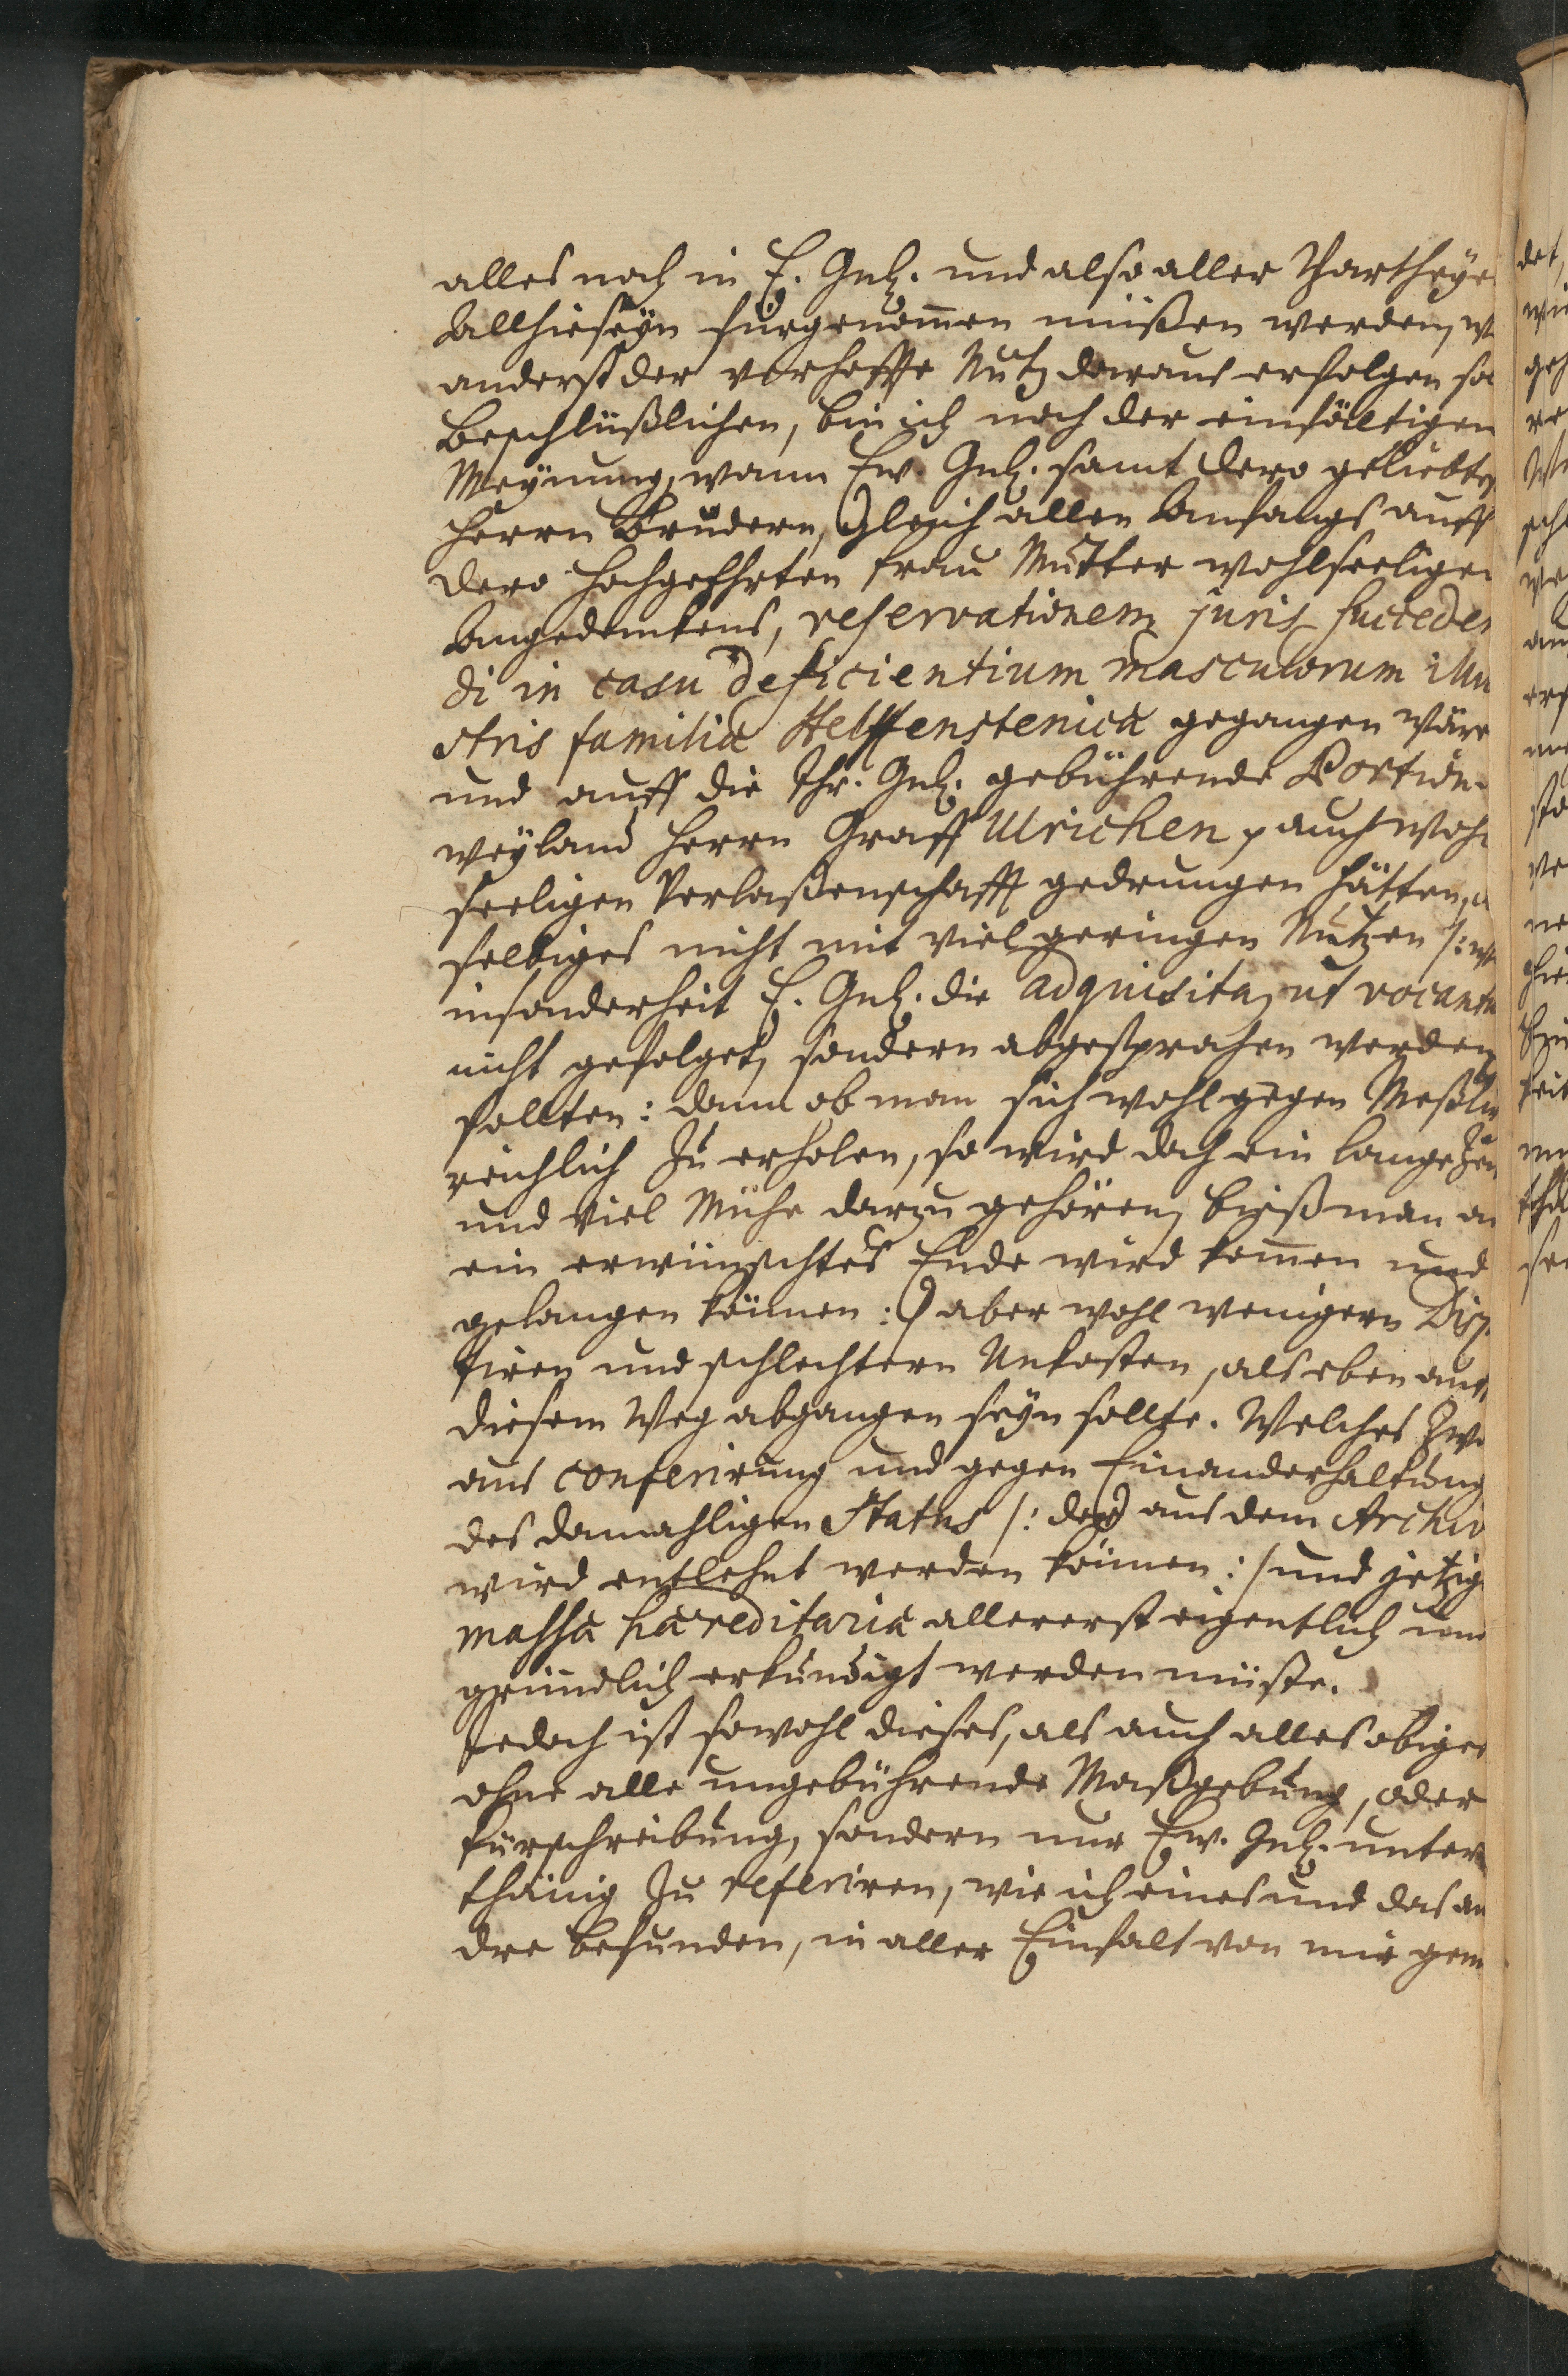 alles noch in E. Gnl. und also aller Partheye
Allhierseyn fürgenom̃en müßen werden, w
anderst der verhoffte Nutz daraus erfolgen so
Beschlüßlichen, bin ich noch der einfältigen
Meynung, wann Ew. Gnl. samt dero geliebte
Herrn Brüdern, Gleich allen Anfangs auff
dero Hochgeehrten Frau Mutter wohlseelige
Angedenkens, reservationem juris succeden
di in casu deficientium masculorum illu
stris familiæ Helffenstenicæ gegangen wäre
und auff die Ihr. Gnl. gebührende Portion
weyland Herrn Graff Ulrichen, auch wohl
seeligen Verlaßenschafft gedrungen hätten,
selbiges nicht mit viel geringen Nutzen /: w
insonderheit E. Gnl. die adquisita, ut vocant
nicht gefolget, sondern abgesprochen werden
sollten: dann ob man sich wohl gegen Meßki
reichlich zu erholen, so wird doch ein lange Zei
und viel Mühe darzu gehören, bieß man a
ein erwünschtes Ende wird kom̃en und
gelangen können :) aber wohl wenigern Disp
tiren und schlechtern Unkosten, als eben auf
diesem Weg abgangen seyn sollte. Welches Zwe
aus conferirung und gegen Einanderhaltung
des damahligen Status /: der aus dem Archiv
wird entlehnt werden können :/ und jetzig
massa hæreditaria allererst eigentlich un
gründlich erkundigt werden müste.
Jedoch ist sowohl dieses, als auch alles obige
ohne alle ungebührende Maßgebung, oder
fürschreibung, sondern nur Ew. Gnl. unter
thänig zu referiren, wie ich eines und das an
dre befunden, in aller Einfalt von mir gem